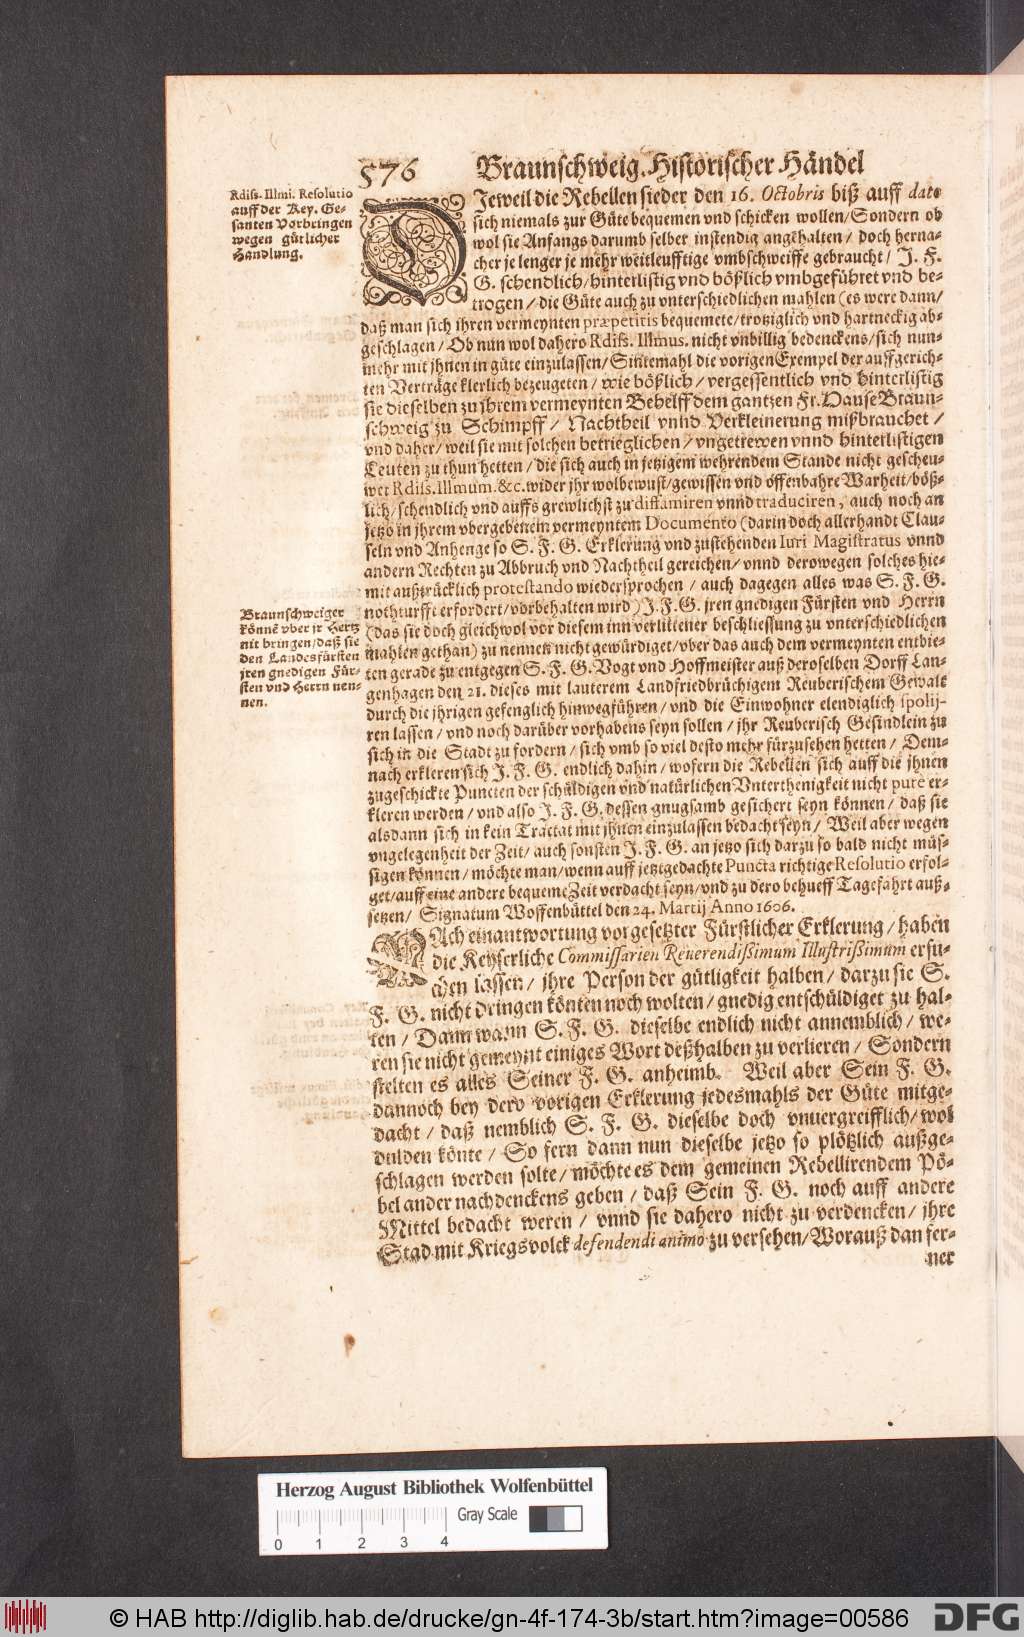 576 Braunschweig. Historischer Händel
Rdiss. Illmi. Resolutio
auff der Key. Ge-
santen Vorbringen
wegen gütlicher
Handlung.
DJeweil die Rebellen sieder den 16. Octobris biß auff dato
sich niemals zur Güte bequemen vnd schicken wollen/ Sondern ob
wol sie Anfangs darumb selber instendig angehalten/ doch herna-
cher je lenger je mehr weitleufftige vmbschweiffe gebraucht/ J. F.
G. schendlich/ hinterlistig vnd bößlich vmbgeführet vnd be-
trogen/ die Güte auch zu vnterschiedlichen mahlen (es were dann/
daß man sich ihren vermeynten præpetitis bequemete/ trotziglich vnd hartneckig ab-
geschlagen/ Ob nun wol dahero Rdiss. Illmus. nicht vnbillig bedenckens/ sich nun-
mehr mit jhnen in güte einzulassen/ Sintemahl die vorigen Exempel der auffgerich-
ten Verträge klerlich bezeugeten/ wie bößlich/ vergessentlich vnd hinterlistig
sie dieselben zu jhrem vermeynten Behelff dem gantzen Fr. Hause Braun-
schweig zu Schimpff/ Nachtheil vnnd Verkleinerung mißbrauchet/
vnd daher/ weil sie mit solchen betrieglichen/ vngetrewen vnnd hinterlistigen
Leuten zu thun hetten/ die sich auch in jetzigem wehrendem Stande nicht gescheu-
wet Rdiss. Illmum. &c. wider jhr wolbewust/ gewissen vnd offenbahre Warheit/ böß-
lich/ schendlich vnd auffs grewlichst zu diffamiren vnnd traduciren, auch noch an
jetzo in jhrem vbergebenem vermeyntem Documento (darin doch allerhandt Clau-
seln vnd Anhenge so S. F. G. Erklerung vnd zustehenden Iuri Magistratus vnnd
andern Rechten zu Abbruch vnd Nachtheil gereichen/ vnnd derowegen solches hie-
mit außtrücklich protestando wiedersprochen/ auch dagegen alles was S. F. G.
nothturfft erfordert/ vorbehalten wird) J. F. G. jren gnedigen Fürsten vnd Herrn
Braunschweiger
könnē vber jr Hertz
nit bringen/ daß sie
den Landesfürsten
jren gnedigen Für-
sten vnd Herrn nen-
nen.
(das sie doch gleichwol vor diesem inn verlittener beschliessung zu vnterschiedlichen
mahlen gethan) zu nennen nicht gewürdiget/ vber das auch dem vermeynten entbie-
ten gerade zu entgegen S. F. G. Vogt vnd Hoffmeister auß deroselben Dorff Lan-
genhagen den 21. dieses mit lauterem Landfriedbrüchigem Reuberischem Gewalt
durch die jhrigen gefenglich hinwegführen/ vnd die Einwohner elendiglich spolij-
ren lassen/ vnd noch darüber vorhabens seyn sollen/ jhr Reuberisch Gesindlein zu
sich in die Stadt zu fordern/ sich vmb so viel desto mehr fürzusehen hetten/ Dem-
nach erkleren sich J. F. G. endlich dahin/ wofern die Rebellen sich auff die jhnen
zugeschickte Puncten der schüldigen vnd natürlichen Vnterthenigkeit nicht pure er-
kleren werden/ vnd also J. F. G. dessen gnugsamb gesichert seyn können/ daß sie
alsdann sich in kein Tractat mit jhnen einzulassen bedacht seyn/ Weil aber wegen
vngelegenheit der Zeit/ auch sonsten J. F. G. an jetzo sich darzu so bald nicht müs-
sigen können/ möchte man/ wenn auff jetztgedachte Puncta richtige Resolutio erfol-
get/ auff eine andere bequeme Zeit verdacht seyn/ vnd zu dero behueff Tagefahrt auß-
setzen/ Signatum Wolffenbüttel den 24. Martij Anno 1606.
NAch einantwortung vorgesetzter Fürstlicher Erklerung/ haben
die Keyserliche Commissarien Reuerendißimum Illustrißimum ersu-
chen lassen/ jhre Person der gütligkeit halben/ darzu sie S.
F. G. nicht dringen könten noch wolten/ gnedig entschüldiget zu hal-
ten/ Dann wann S. F. G. dieselbe endlich nicht annemblich/ we-
ren sie nicht gemeynt einiges Wort deßhalben zu verlieren/ Sondern
stelten es alles Seiner F. G. anheimb. Weil aber Sein F. G.
dannoch bey dero vorigen Erklerung jedesmahls der Güte mitge-
dacht/ daß nemblich S. F. G. dieselbe doch vnuergreifflich/ wol
dulden könte/ So fern dann nun dieselbe jetzo so plötzlich außge-
schlagen werden solte/ möchte es dem gemeinen Rebellirendem Pö-
bel ander nachdenckens geben/ daß Sein F. G. noch auff andere
Mittel bedacht weren/ vnnd sie dahero nicht zu verdencken/ jhre
Stad mit Kriegsvolck defendendi animo zu versehen/ Worauß dan fer-
ner
Herzog August Bibliothek Wolfenbüttel
Gray Scale
0 1 2 3 4
© HAB http://diglib.hab.de/drucke/gn-4f-174-3b/start.htm?image=00586 DFG